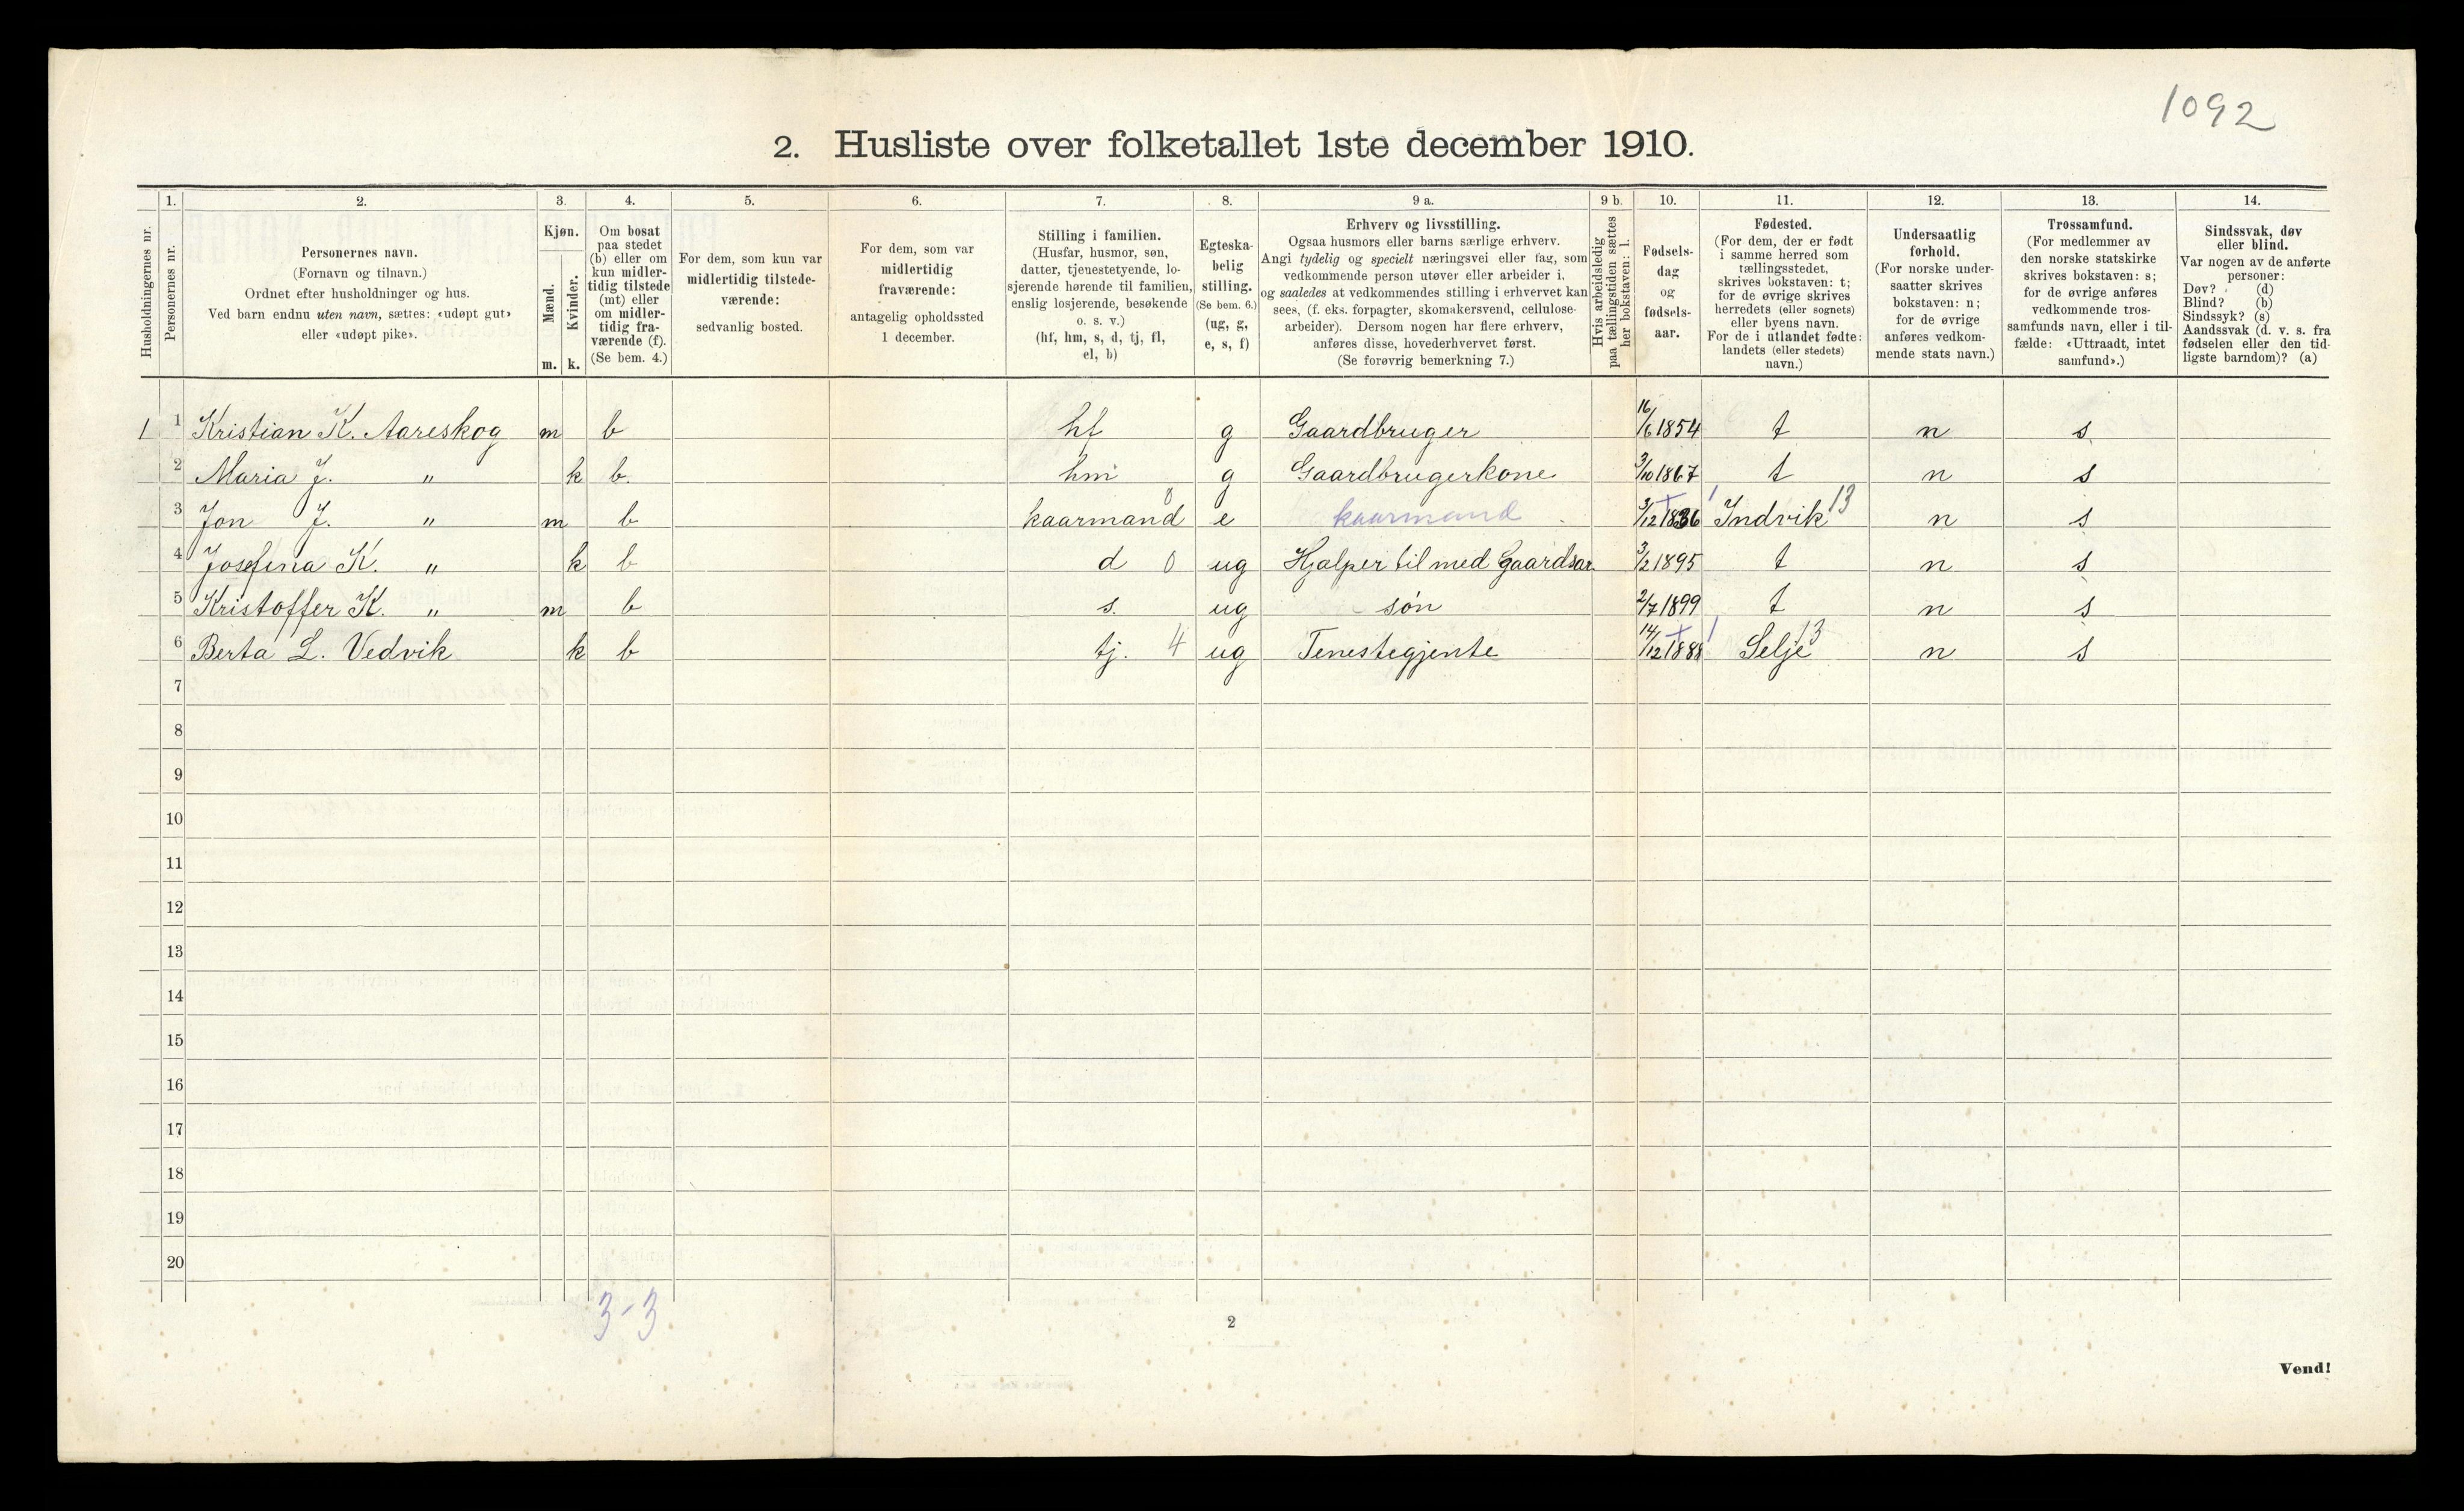 1092
2. Husliste over folketallet 1ste december 1910.
Husholdningernes nr.
1.
Personernes nr.
2.
Personernes navn.
(Fornavn og tilnavn.)
Ordnet efter husholdninger og hus.
Ved barn endnu uten navn, sættes: «udøpt gut»
eller «udøpt pike».
3.
Kjøn.
Mænd.
m.
Kvinder.
k.
4.
Om bosat
paa stedet
(b) eller om
kun midler-
tidig tilstede
(mt) eller
om midler-
tidig fra-
værende (f).
(Se bem. 4.)
5.
For dem, som kun var
midlertidig tilstede-
værende:
sedvanlig bosted.
6.
For dem, som var
midlertidig
fraværende:
antagelig opholdssted
1 december.
7.
Stilling i familien.
(Husfar, husmor, søn,
datter, tjenestetyende, lo-
sjerende hørende til familien,
enslig losjerende, besøkende
o. s. v.)
(hf, hm, s, d, tj, fl,
el, b)
8.
Egteska-
belig
stilling.
(Se bem. 6.)
(ug, g,
e, s, f)
9 a.
Erhverv og livsstilling.
Ogsaa husmors eller barns særlige erhverv.
Angi tydelig og specielt næringsvei eller fag, som
vedkommende person utøver eller arbeider i,
og saaledes at vedkommendes stilling i erhvervet kan
sees, (f. eks. forpagter, skomakersvend, cellulose-
arbeider). Dersom nogen har flere erhverv,
anføres disse, hovederhvervet først.
(Se forøvrig bemerkning 7.)
9 b.
Hvis arbeidsledig
paa tællingstiden sættes
her bokstaven: l.
10.
Fødsels-
dag
og
fødsels-
aar.
11.
Fødested.
(For dem, der er født
i samme herred som
tællingsstedet,
skrives bokstaven: t;
for de øvrige skrives
herredets (eller sognets)
eller byens navn.
For de i utlandet fødte:
landets (eller stedets)
navn.)
12.
Undersaatlig
forhold.
(For norske under-
saatter skrives
bokstaven: n;
for de øvrige
anføres vedkom-
mende stats navn.)
13.
Trossamfund.
(For medlemmer av
den norske statskirke
skrives bokstaven: s;
for de øvrige anføres
vedkommende tros-
samfunds navn, eller i til-
fælde: «Uttraadt, intet
samfund».)
14.
Sindssvak, døv
eller blind.
Var nogen av de anførte
personer:
Døv? (d)
Blind? (b)
Sindssyk? (s)
Aandssvak (d. v. s. fra
fødselen eller den tid-
ligste barndom)? (a)
1 1 Kristian K. Aareskog m b hf g Gaardbruger 16/6 1854 t n s
2 Maria J. " k b. hm g Gaardbrugerkone 3/10 1867 t n s
3 Jon J. " m b kaarmand 0 e kaarmand 3/12 1836 Indvik 13 n s
4 Josefina K. " k b d 0 ug Hjælper til med Gaardsar. 3/2 1895 t n s
5 Kristoffer K. " m b s. ug søn 2/7 1899 t n s
6 Berta L. Vedvik k b tj. 4 ug Tenestegjente 14/12 1888 Selje 13 n s
7
8
9
10
11
12
13
14
15
16
17
18
19
20
3-3
2
Vend!